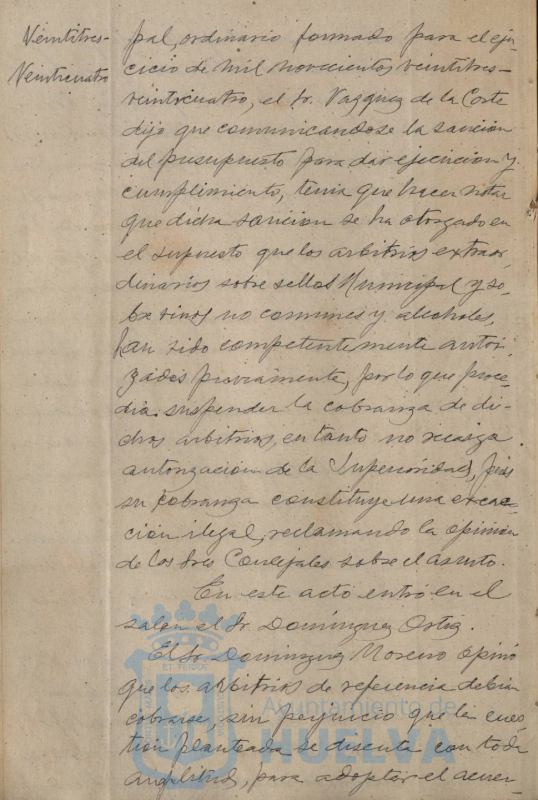 Veintitres-
Veinticuatro
pal, ordinario formado para el ejer
cicio de mil novecientos veintitres-
veinticuatro, el Sr. Vazquez de la Corte
dijo que comunicandose la sancion
del presupuesto para dar ejecucion y
cumplimiento, tenia que hacer notar
que dicha sancion se ha otorgado en
el supuesto que los arbitrios extraor
dinarios sobre sellos Municipal y so-
bre vinos no comunes y alcoholes,
han sido competentemente autori-
zados previamente, por lo que proce-
dia suspender la cobranza de di-
chos arbitrios, en tanto no recaiga
autorizacion de la Superioridad, pues
su cobranza constituye una exac-
cion ilegal, reclamando la opinion
de los Sres Concejales sobre el asunto.
En este acto entró en el
salon el Sr Dominguez Ortiz.
El Sr. Dominguez Moreno opinó
que los arbitrios de referencia debian
cobrarse, sin perjuicio que la cues
tion planteada se discuta con toda
amplitud, para adoptar el acuer-
Ayuntamiento de
HUELVA